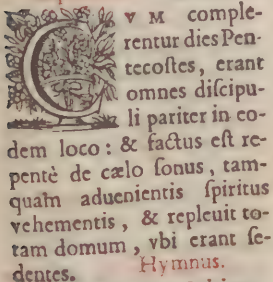 CVM comple-
rentur dies Pen-
tecoſtes, erant
omnes diſcipu-
li pariter in eo-
dem loco: & factus eſt re-
pentè de cælo ſonus, tam-
quàm aduenientis ſpiritus
vehementis, & repleuit to-
tam domum, vbi erant ſe-
dentes. Hymnus.